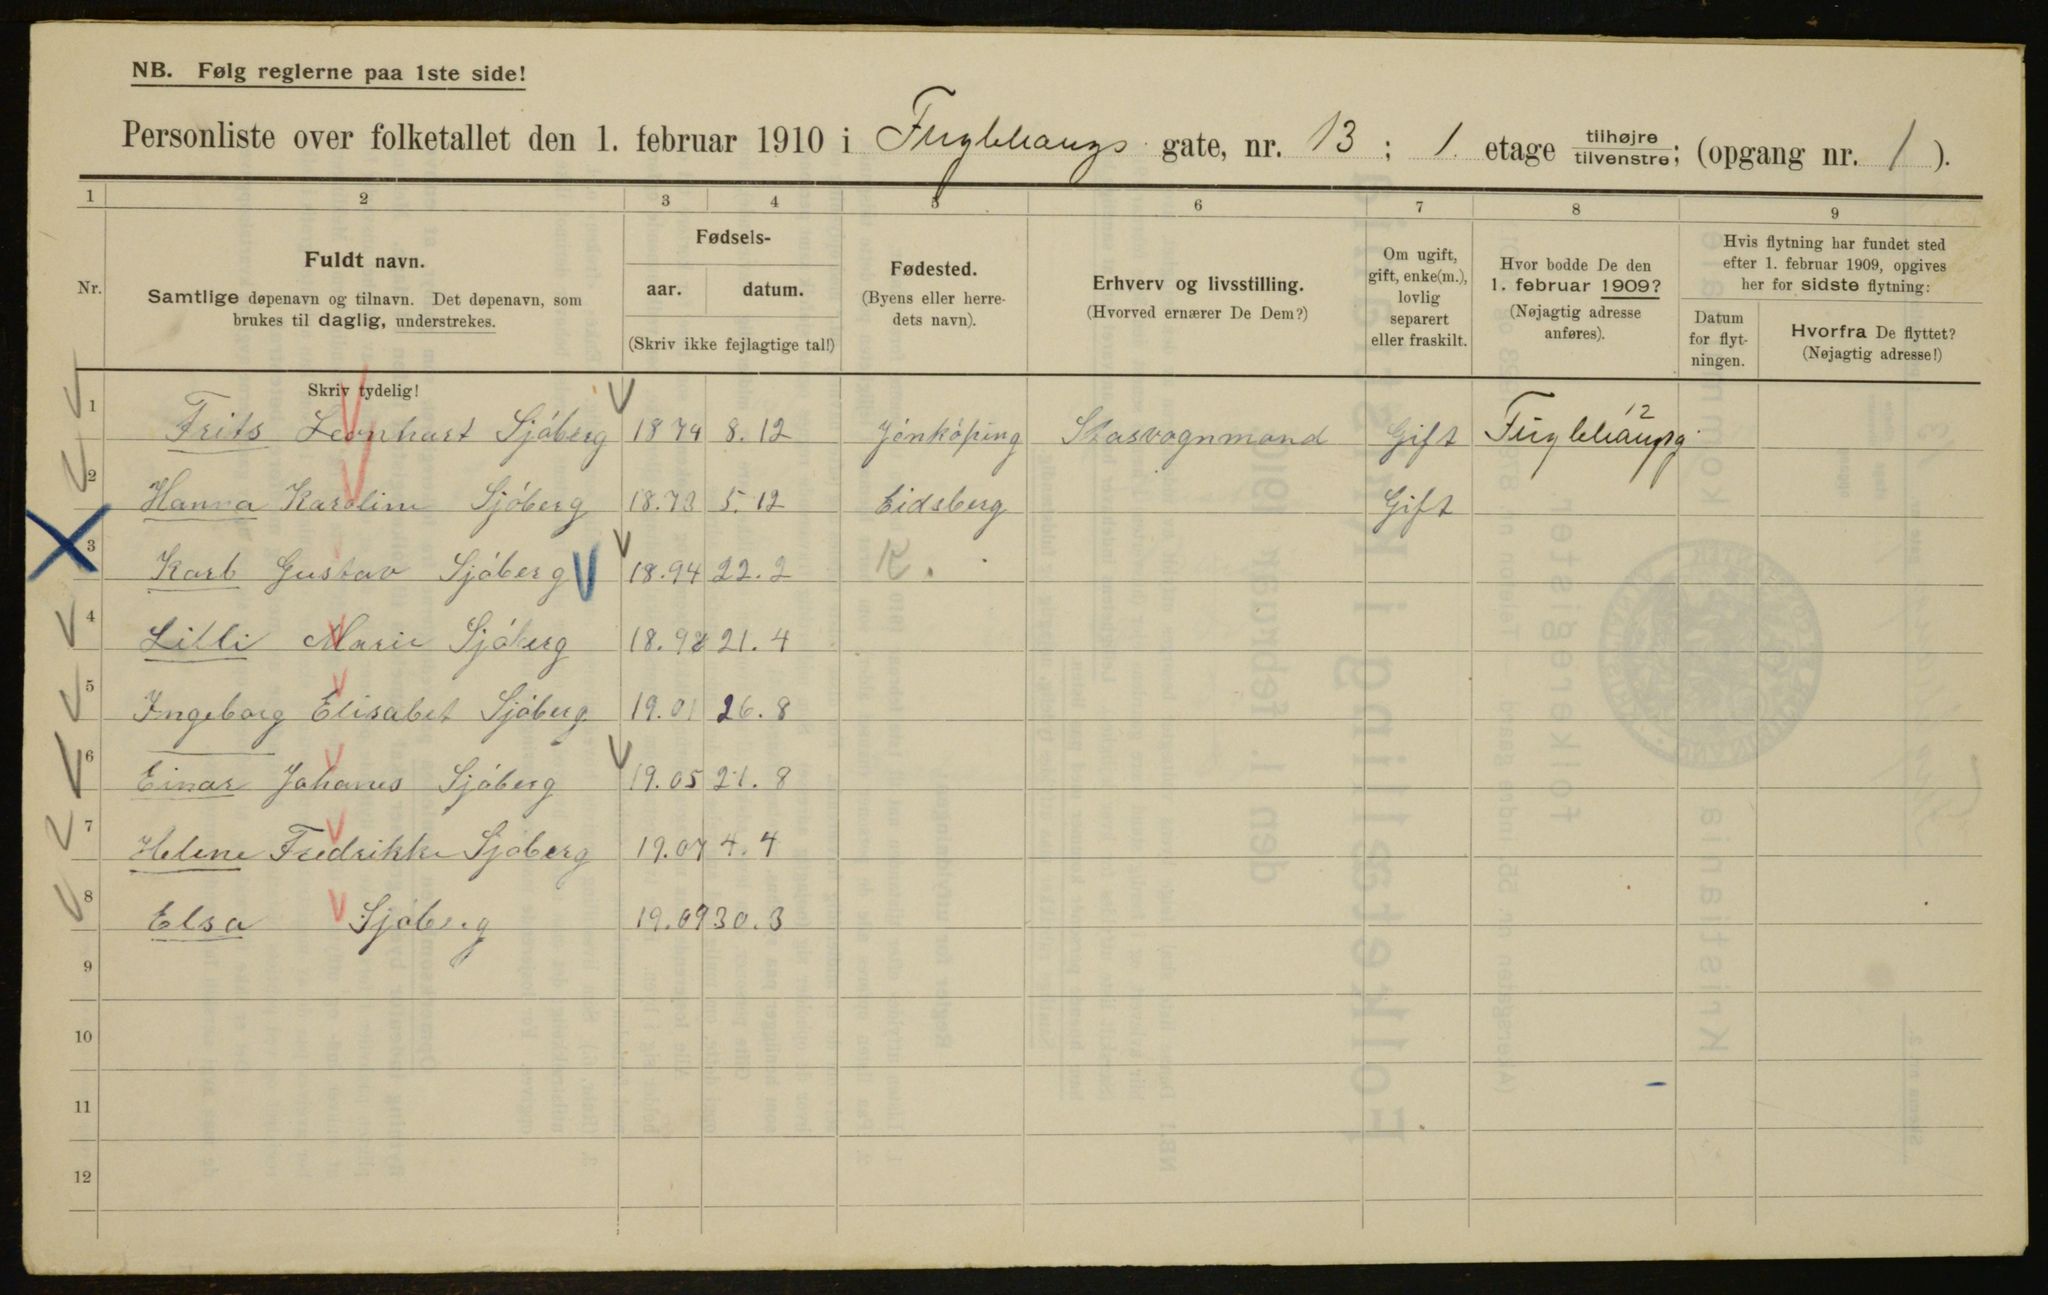 NB. Følg reglerne paa 1ste side!
Personliste over folketallet den 1. februar 1910 i Fuglehaugs gate, nr. 13 ; 1. etage tilhøjre tilvenstre; (opgang nr. 1 ).
1 2 3 4 5 6 7 8 9
Nr.
Fuldt navn.
Samtlige døpenavn og tilnavn. Det døpenavn, som
brukes til daglig, understrekes.
Skriv tydelig!
Fødsels-
aar. datum.
(Skriv ikke fejlagtige tal!)
Fødested.
(Byens eller herre-
dets navn).
Erhverv og livsstilling.
(Hvorved ernærer De Dem?)
Om ugift,
gift, enke(m.),
lovlig
separert
eller fraskilt.
Hvor bodde De den
1. februar 1909?
(Nøjagtig adresse
anføres).
Hvis flytning har fundet sted
efter 1. februar 1909, opgives
her for sidste flytning:
Datum
for flyt-
ningen.
Hvorfra De flyttet?
(Nøjagtig adresse!)
1 Frits Leonhart Sjöberg 1874 8.12 Jönköping Stasvognmand Gift Fuglehaugsg 12
2 Hanna Karoline Sjöberg 18.73 5.12 Eidsberg Gift
3 Karl Gustav Sjöberg 18.94 22.2 K.
4 Lilli Marie Sjöberg 18.98 21.4
5 Ingeborg Elisabet Sjöberg 19.01 26.8
6 Einar Johanes Sjöberg 19.05 21.8
7 Helene Fredrikke Sjöberg 19.07 4.4
8 Elsa Sjöberg 19.09 30.3
9
10
11
12